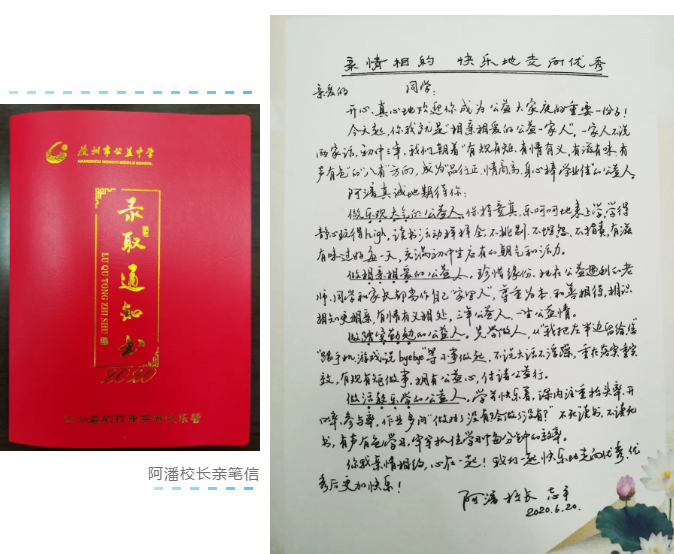 杭州市公益中学
HANGZHOU GONGYI MIDDLE SCHOOL
录取通知书
LU QU TONG ZHI SHU
2020
阿潘校长亲笔信
亲情相约 快乐地走向优秀
亲爱的 同学:
开心、真心地欢迎你成为公益大家庭的重要一份子!
今天起,你我就是"相亲相爱的公益一家人",一家人不说
两家话,初中三年,我们朝着"有规有矩,有情有义,有滋有味,有
声有色"的"八有"方向,成为"品行正,情商高,身心棒,学业佳"的公益人。
阿潘真诚地期待你:
做乐观大气的公益人。你将登真、乐呵呵地来上学,学得
静心玩得high,读书运动样样全,不挑剔、不埋怨、不指责,有滋
有味过好每一天,充满初中生应有的朝气和活力。
做相亲相爱的公益人。珍惜缘份,把在公益遇到的老
师、同学和家长都当作自己"家里人",尊重为本,和善相待,相识
相知更相亲,有情有义相处,三年公益人,一生公益情。
做踏实勤勉的公益人。先学做人,从"我把左半边留给您"
"跟手机、游戏说byebye"等小事做起,不说大话不浮躁,重在落实重实
效,有规有矩做事,拥有公益心,付诸公益行。
做活跃乐学的公益人。学并快乐着,课内注重抬头率、开
口率、参与率,作业多问"做对了没有?会做了没有?"不死读书,不读死
书,有声有色学习,牢牢抓住学习每分钟的效率。
你我亲情相约,心在一起!我们一起快乐地走向优秀,优
秀后更加快乐!
阿潘校长 志平
2020.6.20.